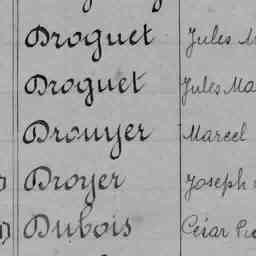 Droguet Jules M
Droguet Jules Ma
Drouyer Marcel
Droyer Joseph
Dubois César